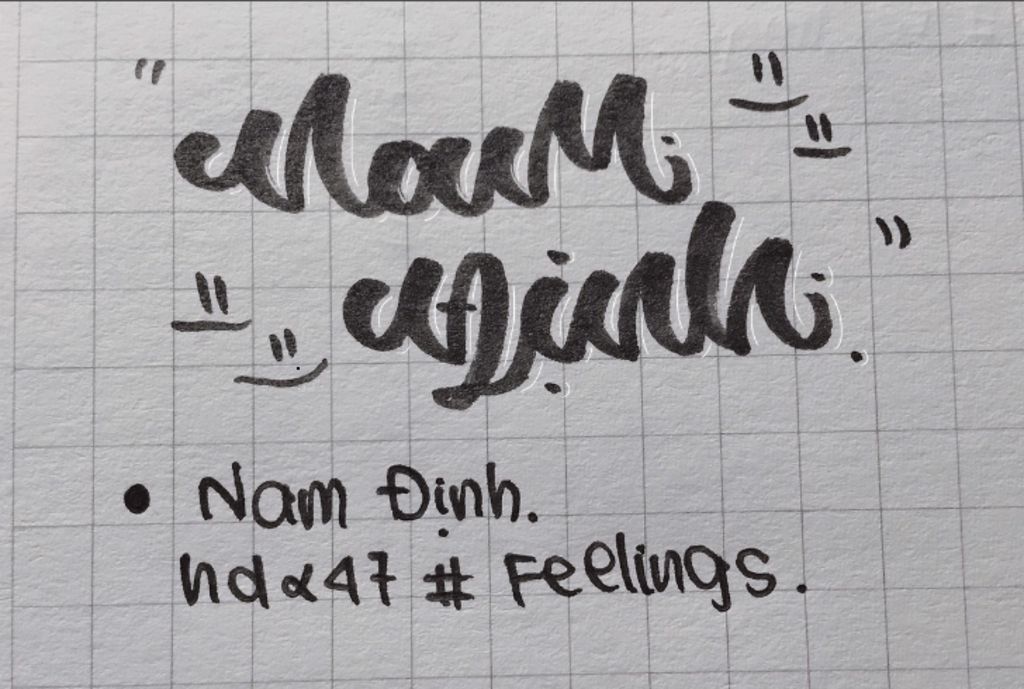 "Nam
Định."
• Nam Định.
nd∝47 # Feelings.